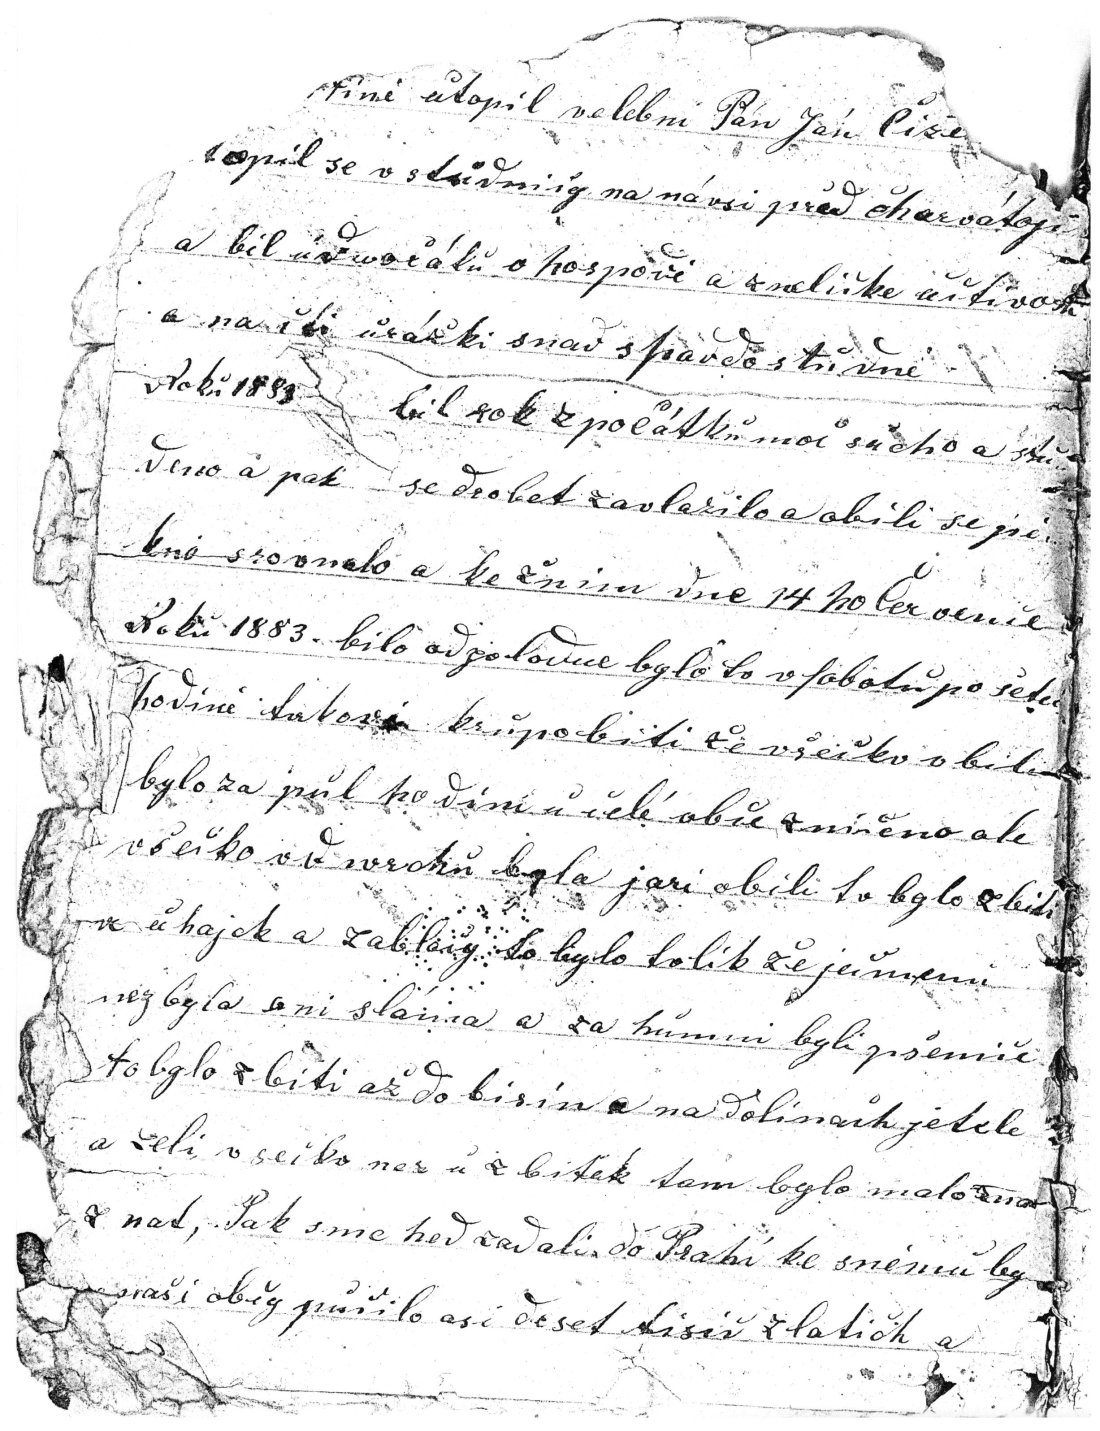 utopil velebni Pán Ján Číže
topil se v studniig na návsi před charvátoji
a bil u dworáku o hospodi a z velicke učtivosti
a na čti urážki snad spad do studně
Roku 1883 bil rok z počátku moc sucho a stu
deno a pak se drobet zavlažilo a obili se pi
kně srovnalo a ke žnim dne 14 ho Červenice
Roku 1883. bilo odpoledne bylo to v sobotu po šetu
hodině takové krupobiti že všeičko obili
bylo za pul hodini u celé obce zničeno ale
všeicko od wrchu byla jari obili to bylo zbiti
u hajek a zablaig to bylo tolik že ječmenu
nezbyla ani sláma a za humni byli pšenice
to bylo zbiti až do bisin a na dolinach jetele
a zeli všeicko nez u zbitek tam bylo malo zna
z nat, Pak sme hed zadali do Prahi ke snému by
naši obcy pučilo asi deset tisic zlatich a